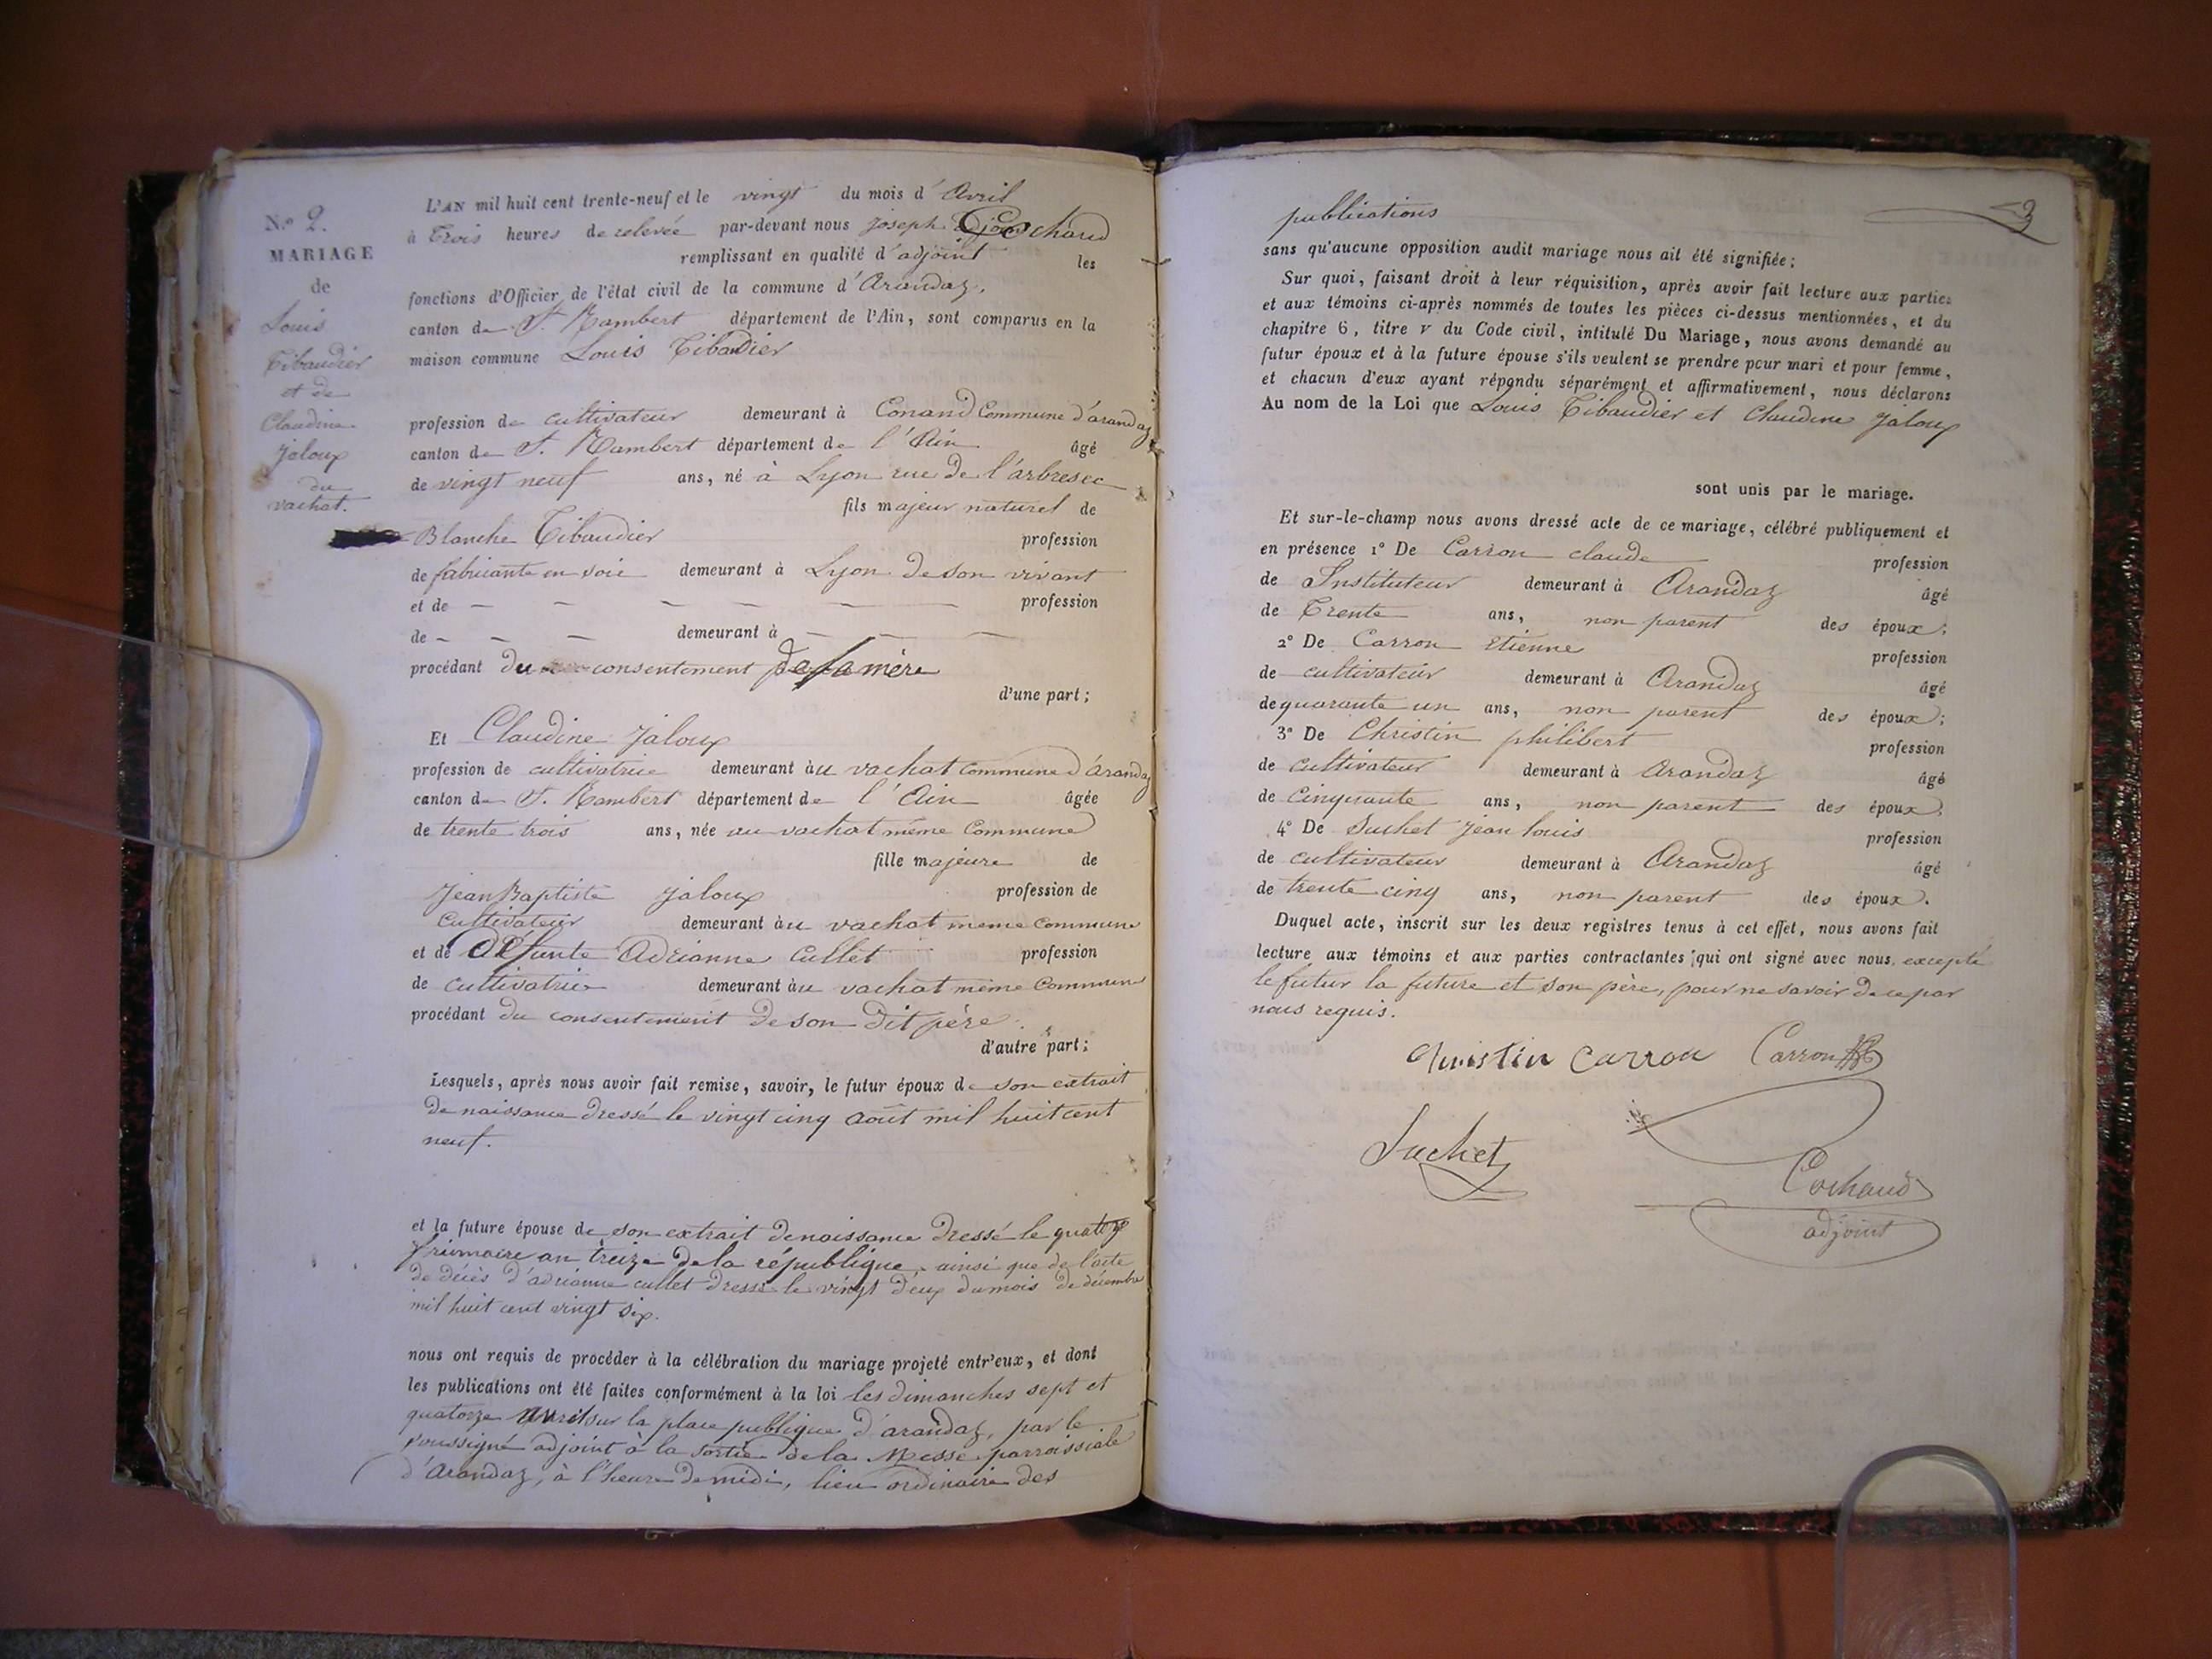 N.º 2.
MARIAGE
de
Louis
Tibaudier
et de
Claudine
Jaloux
du
vachat.
L'AN mil huit cent trente-neuf et le vingt du mois d'Avril
à Trois heures de relevée par-devant nous joseph Cochaud
remplissant en qualité d'adjoint les
fonctions d'Officier de l'état civil de la commune d'Arandaz,
canton de St. Rambert département de l'Ain, sont comparus en la
maison commune Louis Tibaudier
profession de cultivateur demeurant à Conand Commune d'arandaz
canton de St. Rambert département de l'Ain âgé
de vingt neuf ans, né à Lyon rue de l'arbresec
fils majeur naturel de
Blanche Tibaudier profession
de fabricante en soie demeurant à Lyon de son vivant
et de — — — — — — profession
de — — — demeurant à — — —
procédant du consentement de sa mère
d'une part;
Et Claudine Jaloux
profession de cultivatrice demeurant au vachat commune d'arandaz
canton de St. Rambert département de l'Ain âgée
de trente trois ans, née au vachat même Commune
fille majeure de
Jean Baptiste Jaloux profession de
Cultivateur demeurant au vachat même commune
et de défunte Adrianne Cullet profession
de cultivatrice demeurant au vachat même Commune
procédant du consentement de son dit père.
d'autre part;
Lesquels, après nous avoir fait remise, savoir, le futur époux de son extrait
de naissance dressé le vingt cinq août mil huit cent
neuf.
et la future épouse de son extrait de naissance dressé le quatorze
frimaire an treize de la république, ainsi que de l'acte
de décès d'adrianne cullet dressé le vingt deux du mois de décembre
mil huit cent vingt six.
nous ont requis de procéder à la célébration du mariage projeté entr'eux, et dont
les publications ont été faites conformément à la loi les dimanches sept et
quatorze avril sur la place publique d'arandaz, par le
soussigné adjoint à la sortie de la Messe parroissiale
d'Arandaz, à l'heure de midi, lieu ordinaire des
publications
sans qu'aucune opposition audit mariage nous ait été signifiée;
Sur quoi, faisant droit à leur réquisition, après avoir fait lecture aux parties
et aux témoins ci-après nommés de toutes les pièces ci-dessus mentionnées, et du
chapitre 6, titre V du Code civil, intitulé Du Mariage, nous avons demandé au
futur époux et à la future épouse s'ils veulent se prendre pour mari et pour femme,
et chacun d'eux ayant répondu séparément et affirmativement, nous déclarons
Au nom de la Loi que Louis Tibaudier et Claudine Jaloux
sont unis par le mariage.
Et sur-le-champ nous avons dressé acte de ce mariage, célébré publiquement et
en présence 1º De Carron claude profession
de Instituteur demeurant à Arandaz âgé
de Trente ans, non parent des époux;
2º De Carron Etienne profession
de cultivateur demeurant à Arandaz âgé
de quarante un ans, non parent des époux;
3º De Christin philibert profession
de cultivateur demeurant à Arandaz âgé
de Cinquante ans, non parent des époux;
4º De Suchet Jean louis profession
de cultivateur demeurant à Arandaz âgé
de trente cinq ans, non parent des époux.
Duquel acte, inscrit sur les deux registres tenus à cet effet, nous avons fait
lecture aux témoins et aux parties contractantes qui ont signé avec nous, excepté
le futur la future et son père, pour ne savoir de ce par
nous requis.
Christin Carron Carron
Suchet
Cochaud
adjoint